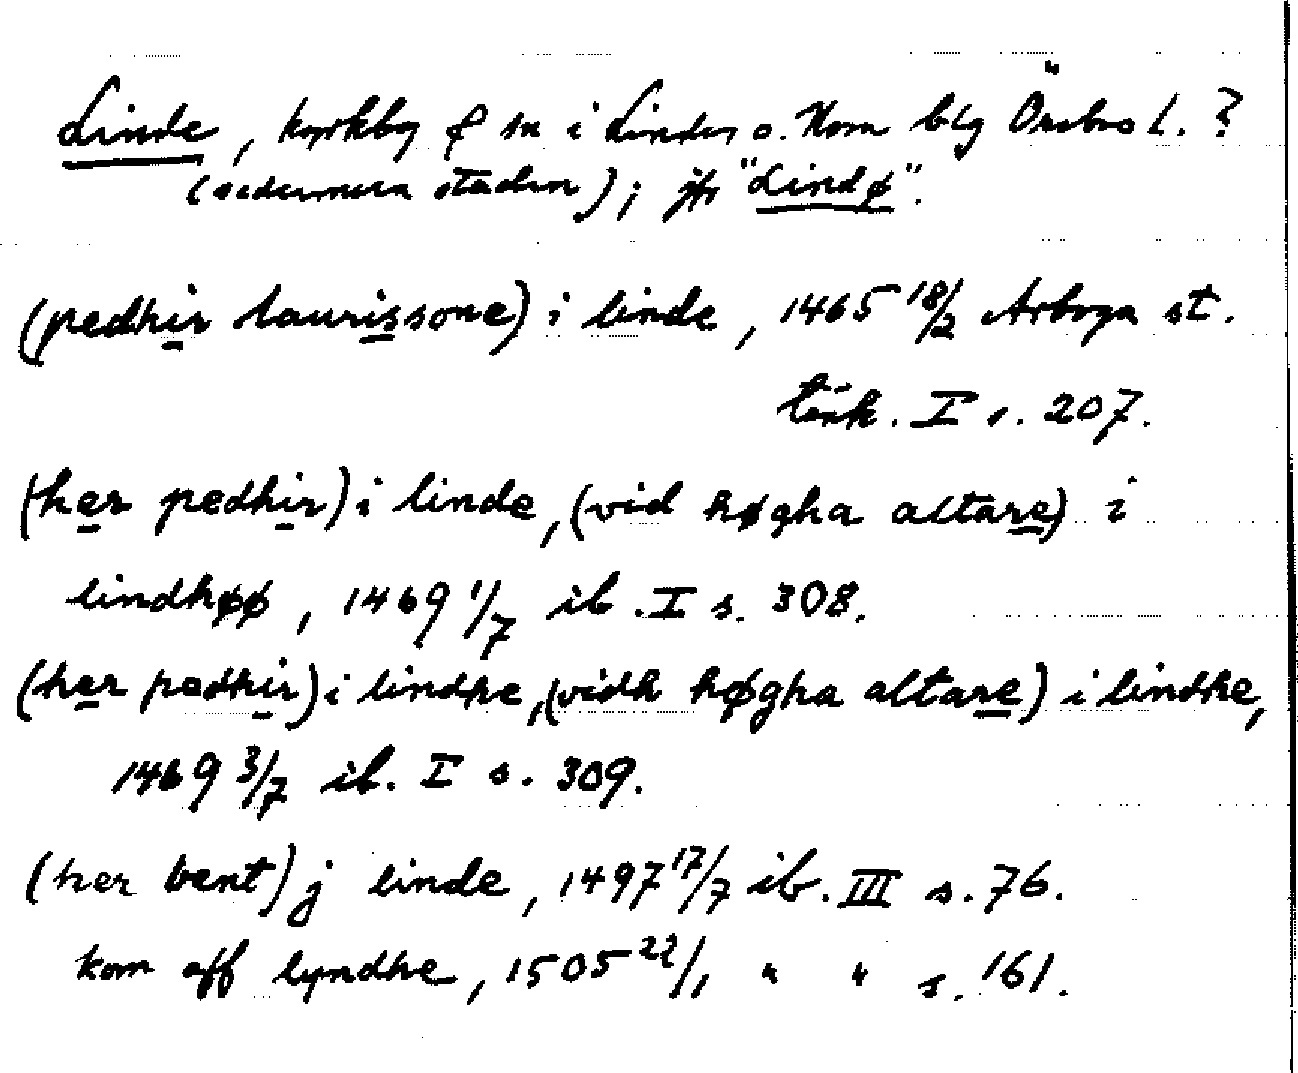 Linde, kyrkby & sn i Lindes o. Nora blg Örebro l. ?
(sedermera staden); jfr "Lindø".
(pedhir laurissone) i linde, 1465 18/2 Arboga st.
tänk. I s. 207.
(her pedhir) i linde, (vid høgha altare) i
lindhøø, 1469 1/7 ib. I s. 308.
(her pedhir) i lindhe, (vidh høgha altare) i lindhe,
1469 3/7 ib. I s. 309.
(her bent) j linde, 1497 17/7 ib. III s. 76.
kom aff lyndhe, 1505 22/1 " " s. 161.